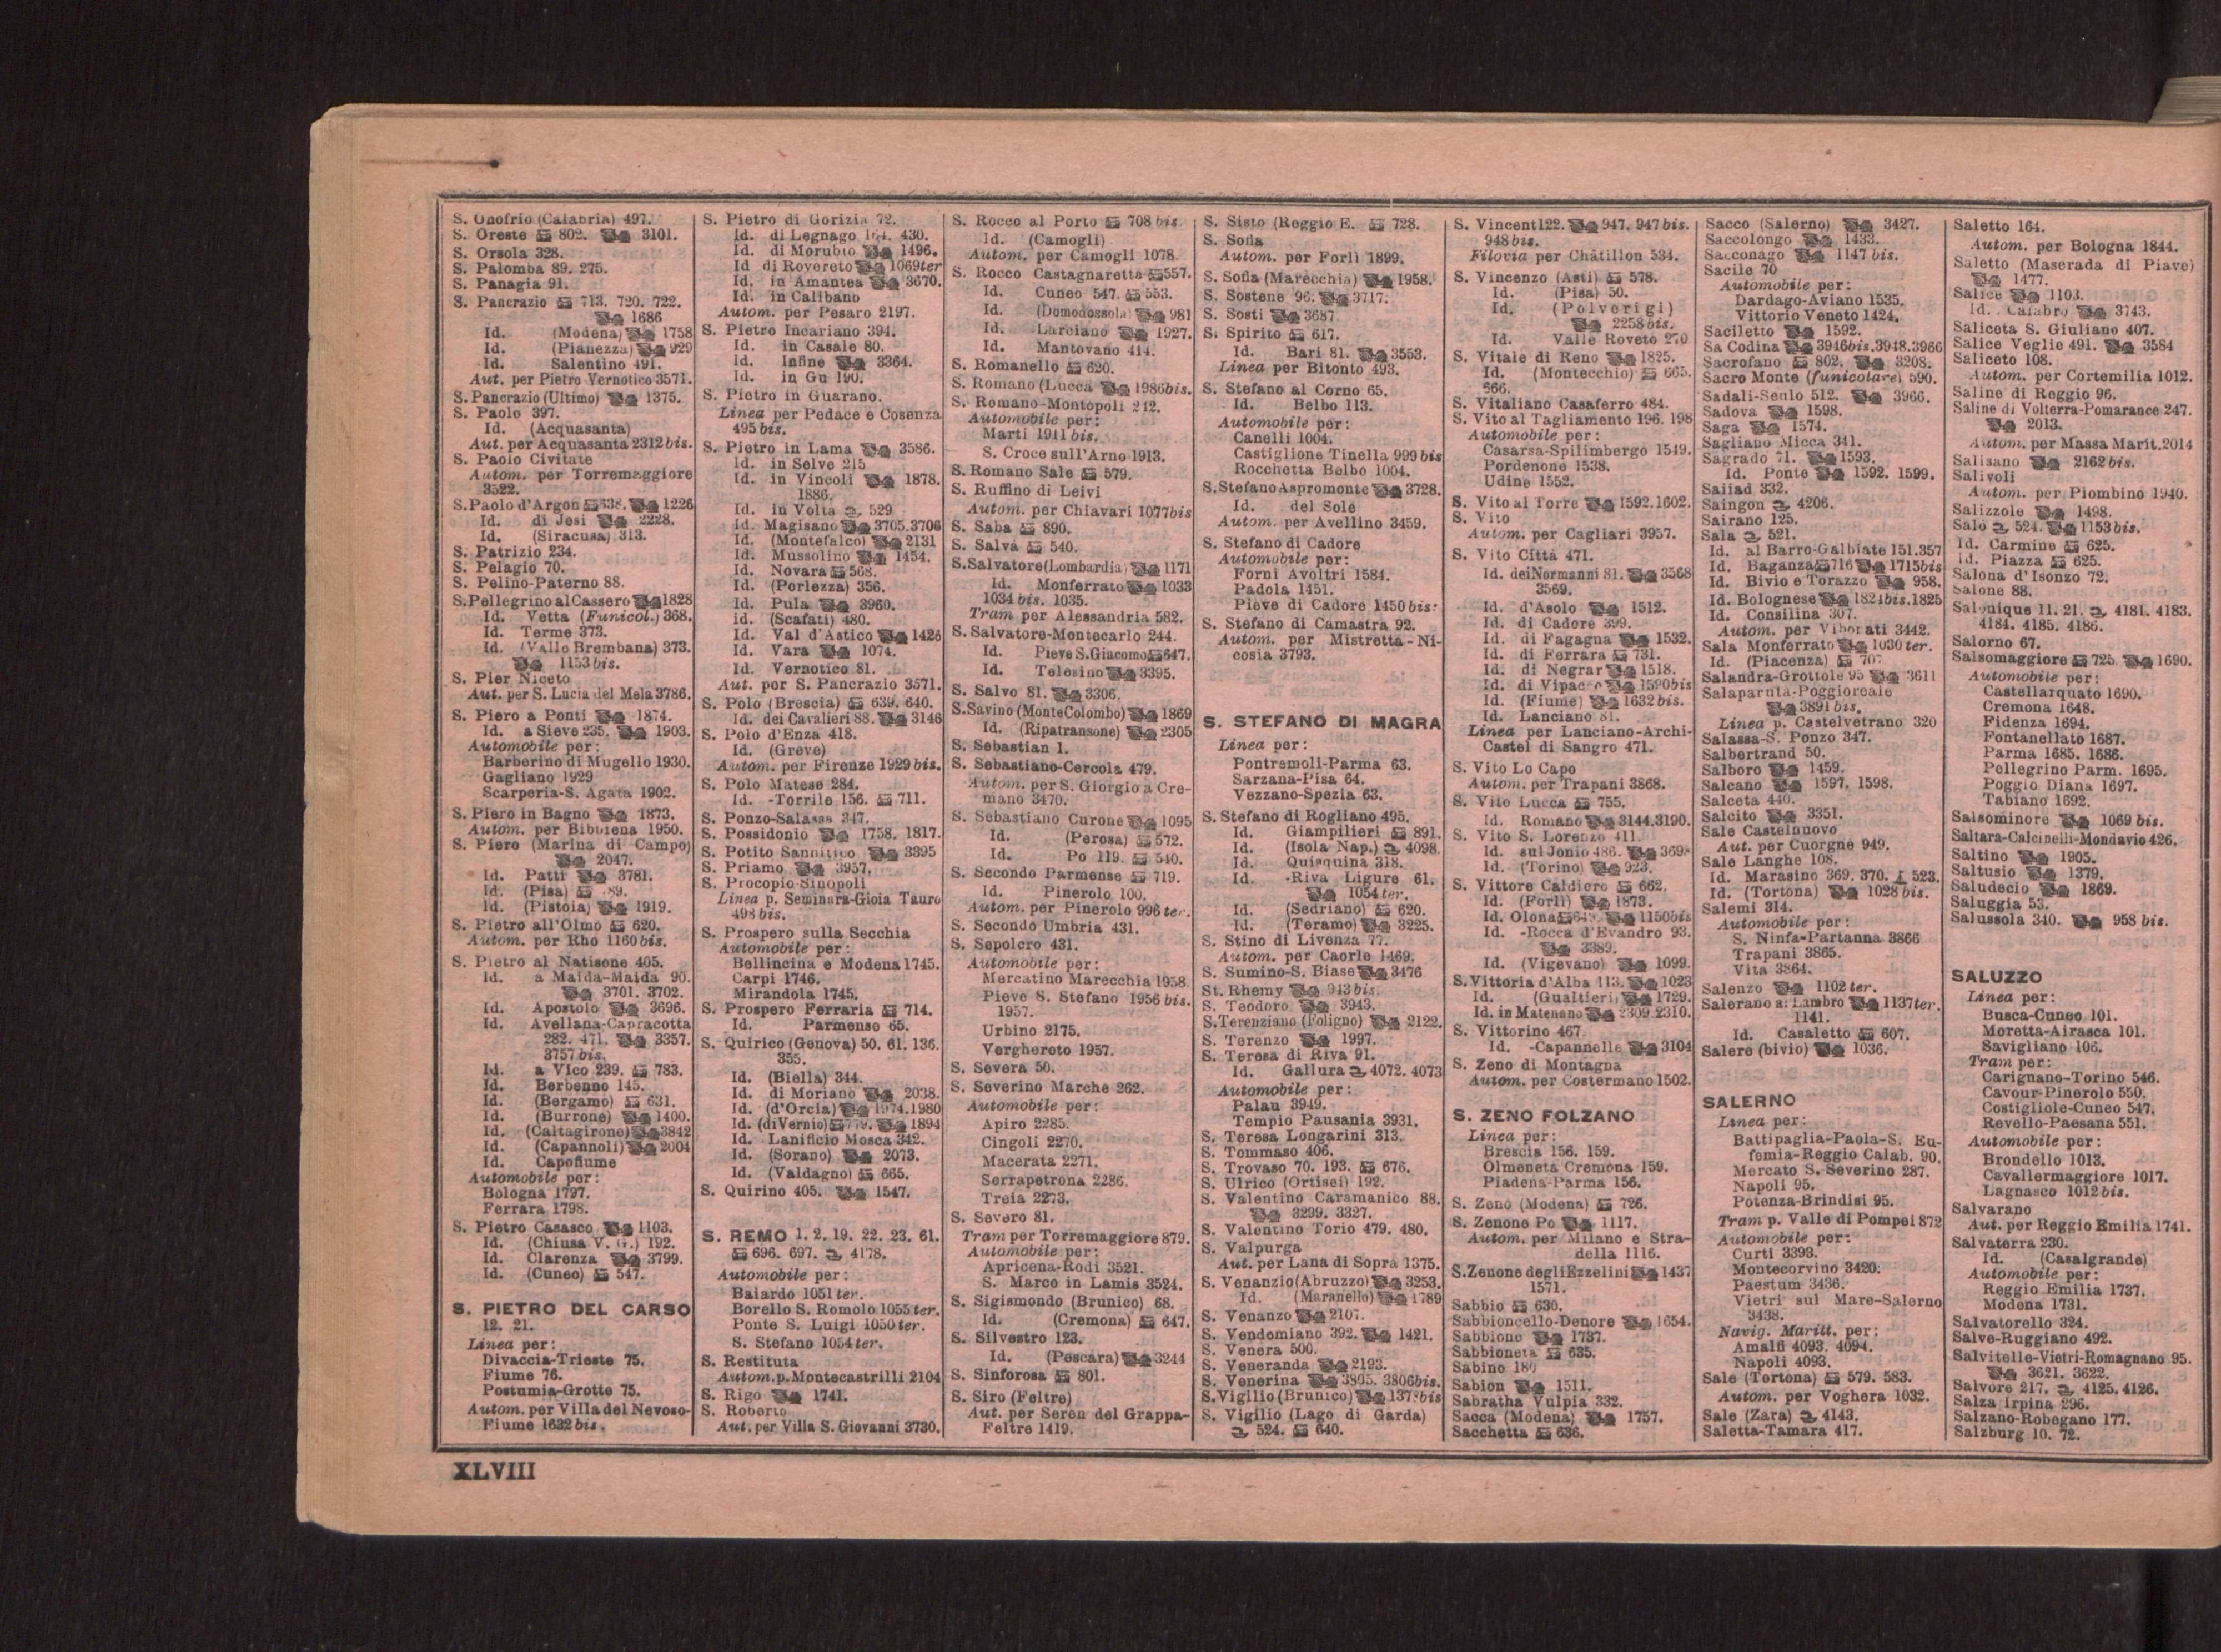 S. Onofrio (Calabria) 497.
S. Oreste 802. 3101.
S. Orsola 328.
S. Palomba 89. 275.
S. Panagia 91.
S. Pancrazio 713. 720. 722.
1686
Id. (Modena) 1758
Id. (Pianezza) 929
Id. Salentino 491.
Aut. per Pietro Vernotico 3571.
S. Pancrazio (Ultimo) 1375.
S. Paolo 397.
Id. (Acquasanta)
Aut. per Acquasanta 2312 bis.
S. Paolo Civitate
Autom. per Torremaggiore
3522.
S. Paolo d'Argon 638. 1226
Id. di Jesi 2228.
Id. (Siracusa) 313.
S. Patrizio 234.
S. Pelagio 70.
S. Pelino-Paterno 88.
S. Pellegrino al Cassero 1828
Id. Vetta (Funicol.) 368.
Id. Terme 373.
Id. (Valle Brembana) 373.
1153 bis.
S. Pier Niceto
Aut. per S. Lucia del Mela 3786.
S. Piero a Ponti 1874.
Id. a Sieve 235. 1903.
Automobile per:
Barberino di Mugello 1930.
Gagliano 1929
Scarperia-S. Agata 1902.
S. Piero in Bagno 1873.
Autom. per Bibbiena 1950.
S. Piero (Marina di Campo)
2047.
Id. Patti 3781.
Id. (Pisa)
Id. (Pistoia) 1919.
S. Pietro all'Olmo 620.
Autom. per Rho 1160 bis.
S. Pietro al Natisone 405.
Id. a Maida-Maida 90.
3701. 3702.
Id. Apostolo 3696.
Id. Avellana-Capracotta
282. 471. 3357.
3757 bis.
Id. a Vico 239. 783.
Id. Berbenno 145.
Id. (Bergamo) 631.
Id. (Burrone) 1400.
Id. (Caltagirone) 3842
Id. (Capannoli) 2004
Id. Capofiume
Automobile per:
Bologna 1797.
Ferrara 1798.
S. Pietro Casasco 1103.
Id. (Chiusa V. G.) 192.
Id. Clarenza 3799.
Id. (Cuneo) 547.
S. PIETRO DEL CARSO
12. 21.
Linea per:
Divaccia-Trieste 75.
Fiume 76.
Postumia-Grotte 75.
Autom. per Villa del Nevoso-
Fiume 1632 bis.
S. Pietro di Gorizia 72.
Id. di Legnago 164. 430.
Id. di Morubio 1496.
Id di Rovereto 1069 ter
Id. in Amantea 3670.
Id. in Calibano
Autom. per Pesaro 2197.
S. Pietro Incariano 394.
Id. in Casale 80.
Id. Infine 3364.
Id. in Gu 190.
S. Pietro in Guarano.
Linea per Pedace e Cosenza
495 bis.
S. Pietro in Lama 3586.
Id. in Selve 215
Id. in Vincoli 1878.
1886.
Id. in Volta 529
Id. Magisano 3705.3706
Id. (Montefalco) 2131
Id. Mussolino 1454.
Id. Novara 568.
Id. (Porlezza) 356.
Id. Pula 3960.
Id. (Scafati) 480.
Id. Val d'Astico 1426
Id. Vara 1074.
Id. Vernotico 81.
Aut. per S. Pancrazio 3571.
S. Polo (Brescia) 639. 640.
Id. dei Cavalieri 88. 3146
S. Polo d'Enza 418.
Id. (Greve)
Autom. per Firenze 1929 bis.
S. Polo Matese 284.
Id. -Torrile 156. 711.
S. Ponzo-Salassa 347.
S. Possidonio 1758. 1817.
S. Potito Sannitico 3395
S. Priamo 3957.
S. Procopio-Sinopoli
Linea p. Seminara-Gioia Tauro
498 bis.
S. Prospero sulla Secchia
Automobile per:
Bellincina e Modena 1745.
Carpi 1746.
Mirandola 1745.
S. Prospero Ferraria 714.
Id. Parmense 65.
S. Quirico (Genova) 50. 61. 136.
355.
Id. (Biella) 344.
Id. di Moriano 2038.
Id. (d'Orcia) 1974.1980
Id. (di Vernio) 1894
Id. Lanificio Mosca 342.
Id. (Sorano) 2073.
Id. (Valdagno) 665.
S. Quirino 405. 1547.
S. REMO 1. 2. 19. 22. 23. 61.
696. 697. 4178.
Automobile per:
Baiardo 1051 ter.
Borello S. Romolo 1055 ter.
Ponte S. Luigi 1050 ter.
S. Stefano 1054 ter.
S. Restituta
Autom. p. Montecastrilli 2104
S. Rigo 1741.
S. Roberto
Aut. per Villa S. Giovanni 3730.
S. Rocco al Porto 708 bis
Id. (Camogli)
Autom. per Camogli 1078.
S. Rocco Castagnaretta 557.
Id. Cuneo 547. 553.
Id. (Domodossola) 981
Id. Larciano 1927.
Id. Mantovano 414.
S. Romanello 620.
S. Romano (Lucca 1986 bis.
S. Romano-Montopoli 242.
Automobile per:
Marti 1911 bis.
S. Croce sull'Arno 1913.
S. Romano Sale 579.
S. Ruffino di Leivi
Autom. per Chiavari 1077 bis
S. Saba 890.
S. Salvá 540.
S. Salvatore (Lombardia) 1171
Id. Monferrato 1033
1034 bis. 1035.
Tram per Alessandria 582.
S. Salvatore-Montecarlo 244.
Id. Pieve S. Giacomo 647.
Id. Telesino 3395.
S. Salvo 81. 3306.
S. Savino (Monte Colombo) 1869
Id. (Ripatransone) 2305
S. Sebastian 1.
S. Sebastiano-Cercola 479.
Autom. per S. Giorgio a Cre-
mano 3470.
S. Sebastiano Curone 1095
Id. (Perosa) 572.
Id. Po 119. 540.
S. Secondo Parmense 719.
Id. Pinerolo 100.
Autom. per Pinerolo 996 ter.
S. Secondo Umbria 431.
S. Sepolcro 431.
Automobile per:
Mercatino Marecchia 1958.
Pieve S. Stefano 1956 bis.
1957.
Urbino 2175.
Verghereto 1957.
S. Severa 50.
S. Severino Marche 262.
Automobile per:
Apiro 2285.
Cingoli 2270.
Macerata 2271.
Serrapetrona 2286.
Treia 2273.
S. Severo 81.
Tram per Torremaggiore 879.
Automobile per:
Apricena-Rodi 3521.
S. Marco in Lamis 3524.
S. Sigismondo (Brunico) 68.
Id. (Cremona) 647.
S. Silvestro 123.
Id. (Pescara) 3244
S. Sinforosa 801.
S. Siro (Feltre)
Aut. per Seren del Grappa-
Feltre 1419.
S. Sisto (Reggio E. 728.
S. Sofia
Autom. per Forlì 1899.
S. Sofia (Marecchia) 1958.
S. Sostene 96. 3717.
S. Sosti 3687
S. Spirito 617.
Id. Bari 81. 3553.
Linea per Bitonto 493.
S. Stefano al Corno 65.
Id. Belbo 113.
Automobile per:
Canelli 1004.
Castiglione Tinella 999 bis
Rocchetta Belbo 1004.
S. Stefano Aspromonte 3728.
Id. del Sole
Autom. per Avellino 3459.
S. Stefano di Cadore
Automobile per:
Forni Avoltri 1584.
Padola 1451.
Pieve di Cadore 1450 bis:
S. Stefano di Camastra 92.
Autom. per Mistretta-Ni-
cosia 3793.
S. STEFANO DI MAGRA
Linea per:
Pontremoli-Parma 63.
Sarzana-Pisa 64.
Vezzano-Spezia 63.
S. Stefano di Rogliano 495.
Id. Giampilieri 891.
Id. (Isola Nap.) 4098.
Id. Quisquina 318.
Id. -Riva Ligure 61.
1054 ter.
Id. (Sedriano) 620.
Id. (Teramo) 3225.
S. Stino di Livenza 77.
Autom. per Caorle 1469.
S. Sumino-S. Biase 3476
St. Rhemy 943 bis.
S. Teodoro 3943.
S. Terenziano (Foligno) 2122.
S. Terenzo 1997.
S. Teresa di Riva 91.
Id. Gallura 4072. 4073
Automobile per:
Palau 3949.
Tempio Pausania 3931.
S. Teresa Longarini 313.
S. Tommaso 406.
S. Trovaso 70. 193. 676.
S. Ulrico (Ortisei) 192.
S. Valentino Caramanico 88.
3299. 3327.
S. Valentino Torio 479. 480.
S. Valpurga
Aut. per Lana di Sopra 1375.
S. Venanzio (Abruzzo) 3253.
Id. (Maranello) 1789
S. Venanzo 2107.
S. Vendemiano 392. 1421.
S. Venera 500.
S. Veneranda 2193.
S. Venerina 3805. 3806 bis.
S. Vigilio (Brunico) bis
S. Vigilio (Lago di Garda)
524. 640.
S. Vincent 122. 947. 947 bis.
948 bis.
Filovia per Châtillon 534.
S. Vincenzo (Asti) 578.
Id. (Pisa) 50.
Id. (Polverigi)
2258 bis.
Id. Valle Roveto 270
S. Vitale di Reno 1825.
Id. (Montecchio) 665.
666.
S. Vitaliano Casaferro 484.
S. Vito al Tagliamento 196. 198
Automobile per:
Casarsa-Spilimbergo 1549.
Pordenone 1538.
Udine 1552.
S. Vito al Torre 1592.1602.
S. Vito
Autom. per Cagliari 3957.
S. Vito Città 471.
Id. dei Normanni 81. 3568
3569.
Id. d'Asolo 1512.
Id. di Cadore 399.
Id. di Fagagna 1532.
Id. di Ferrara 731.
Id. di Negrar 1518.
Id. di Vipacco 1590 bis
Id. (Fiume) 1632 bis.
Id. Lanciano 81.
Linea per Lanciano-Archi-
Castel di Sangro 471.
S. Vito Lo Capo
Autom. per Trapani 3868.
S. Vito Lucca 755.
Id. Romano 3144.3190.
S. Vito S. Lorenzo 411.
Id. sul Jonio 486.
Id. (Torino) 923.
S. Vittore Caldiero 662.
Id. (Forlì) 1873.
Id. Olona 1150 bis
Id. -Rocca d'Evandro 93.
3389.
Id. (Vigevano) 1099.
S. Vittoria d'Alba 113. 1023
Id. (Gualtieri) 1729.
Id. in Matenano 2309.2310.
S. Vittorino 467.
Id. -Capannelle 3104
S. Zeno di Montagna
Autom. per Costermano 1502.
S. ZENO FOLZANO
Linea per:
Brescia 156. 159.
Olmeneta Cremona 159.
Piadena-Parma 156.
S. Zeno (Modena) 726.
S. Zenone Po 1117.
Autom. per Milano e Stra-
della 1116.
S. Zenone degli Ezzelini 1437
1571.
Sabbio 630.
Sabbioncello-Denore 1654.
Sabbione 1737.
Sabbioneta 635.
Sabino 180
Sabion 1511.
Sabratha Vulpia 332.
Sacca (Modena) 1757.
Sacchetta 636.
Sacco (Salerno) 3427.
Saccolongo 1433.
Sacconago 1147 bis.
Sacile 70
Automobile per:
Dardago-Aviano 1535.
Vittorio Veneto 1424.
Saciletto 1592.
Sa Codina 3946 bis.3948.3966
Sacrofano 802. 3208.
Sacro Monte (funicolare) 590.
Sadali-Seulo 512. 3966.
Sadova 1598.
Saga 1574.
Sagliano Micca 341.
Sagrado 71. 1593.
Id. Ponte 1592. 1599.
Saiiad 332.
Saingon 4206.
Sairano 125.
Sala 521.
Id. al Barro-Galbiate 151.357
Id. Baganza 716 1715 bis
Id. Bivio e Torazzo 958.
Id. Bolognese 1824 bis.1825
Id. Consilina 307.
Autom. per Vibonati 3442.
Sala Monferrato 1030 ter.
Id. (Piacenza) 707
Salandra-Grottole 95 3611
Salaparuta-Poggioreale
3891 bis.
Linea p. Castelvetrano 320
Salassa-S. Ponzo 347.
Salbertrand 50.
Salboro 1459.
Salcano 1597. 1598.
Salceta 440.
Salcito 3351.
Sale Castelnuovo
Aut. per Cuorgnè 949.
Sale Langhe 108.
Id. Marasino 369. 370. 523.
Id. (Tortona) 1028 bis.
Salemi 314.
Automobile per:
S. Ninfa-Partanna 3866
Trapani 3865.
Vita 3864.
Salenzo 1102 ter.
Salerano al Lambro 1137 ter.
1141.
Id. Casaletto 607.
Salere (bivio) 1036.
SALERNO
Linea per:
Battipaglia-Paola-S. Eu-
femia-Reggio Calab. 90.
Mercato S. Severino 287.
Napoli 95.
Potenza-Brindisi 95.
Tram p. Valle di Pompei 872
Automobile per:
Curti 3393.
Montecorvino 3420.
Paestum 3436.
Vietri sul Mare-Salerno
3438.
Navig. Maritt. per:
Amalfi 4093. 4094.
Napoli 4093.
Sale (Tortona) 579. 583.
Autom. per Voghera 1032.
Sale (Zara) 4143.
Saletta-Tamara 417.
Saletto 164.
Autom. per Bologna 1844.
Saletto (Maserada di Piave)
1477.
Salice 1103.
Id. Calabro 3743.
Saliceta S. Giuliano 407.
Salice Veglie 491. 3584
Saliceto 108.
Autom. per Cortemilia 1012.
Saline di Reggio 96.
Saline di Volterra-Pomarance 247.
2013.
Autom. per Massa Marit.2014
Salisano 2162 bis.
Salivoli
Autom. per Piombino 1940.
Salizzole 1498.
Salò 524. 1153 bis.
Id. Carmine 625.
Id. Piazza 625.
Salona d'Isonzo 72.
Salone 88.
Salonique 11. 21. 4181. 4183.
4184. 4185. 4186.
Salorno 67.
Salsomaggiore 725. 1690.
Automobile per:
Castellarquato 1690.
Cremona 1648.
Fidenza 1694.
Fontanellato 1687.
Parma 1685. 1686.
Pellegrino Parm. 1695.
Poggio Diana 1697.
Tabiano 1692.
Salsominore 1069 bis.
Saltara-Calcinelli-Mondavio 426.
Saltino 1905.
Saltusio 1379.
Saludecio 1869.
Saluggia 53.
Salussola 340. 958 bis.
SALUZZO
Linea per:
Busca-Cuneo 101.
Moretta-Airasca 101.
Savigliano 106.
Tram per:
Carignano-Torino 546.
Cavour-Pinerolo 550.
Costigliole-Cuneo 547.
Revello-Paesana 551.
Automobile per:
Brondello 1013.
Cavallermaggiore 1017.
Lagnasco 1012 bis.
Salvarano
Aut. per Reggio Emilia 1741.
Salvaterra 230.
Id. (Casalgrande)
Automobile per:
Reggio Emilia 1737.
Modena 1731.
Salvatorello 324.
Salve-Ruggiano 492.
Salvitelle-Vietri-Romagnano 95.
3621. 3622.
Salvore 217. 4125. 4126.
Salza Irpina 296.
Salzano-Robegano 177.
Salzburg 10. 72.
XLVIII